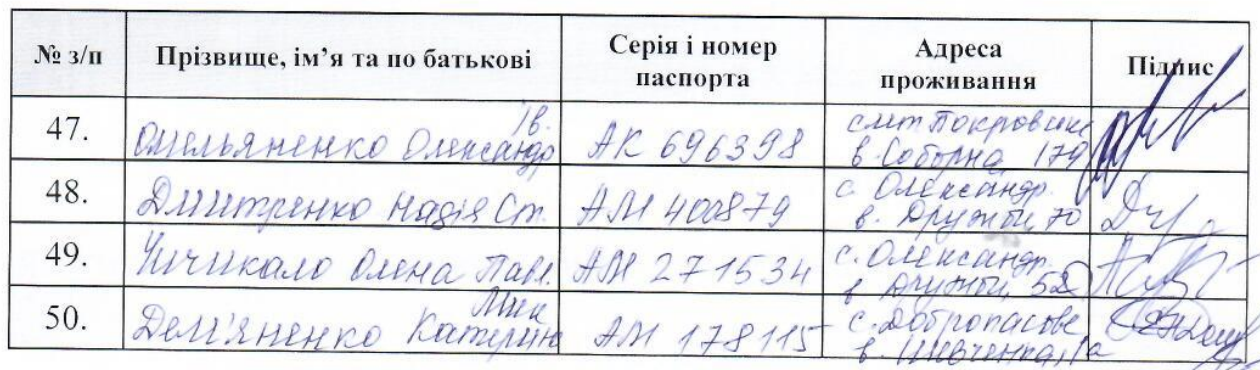 № з/п Прізвище, ім’я та по батькові Серія і номер паспорта Адреса проживання Підпис
47. Омельяненко Олександр Ів. АК 696398 смт Покровське в. Соборна 179
48. Дмитренко Надія Ст. АМ 400879 с. Олександр. в. Дружби 70
49. Чичикало Олена Павл. АМ 271534 с. Олександр. в Дружби, 52
50. Дем'яненко Катерина Мик АМ 178115 с. Добропасове в. Шевченка, 1а